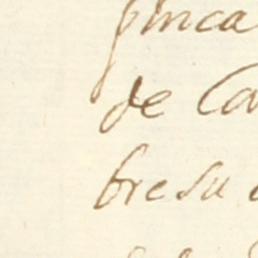 finca
de Ca
bre su